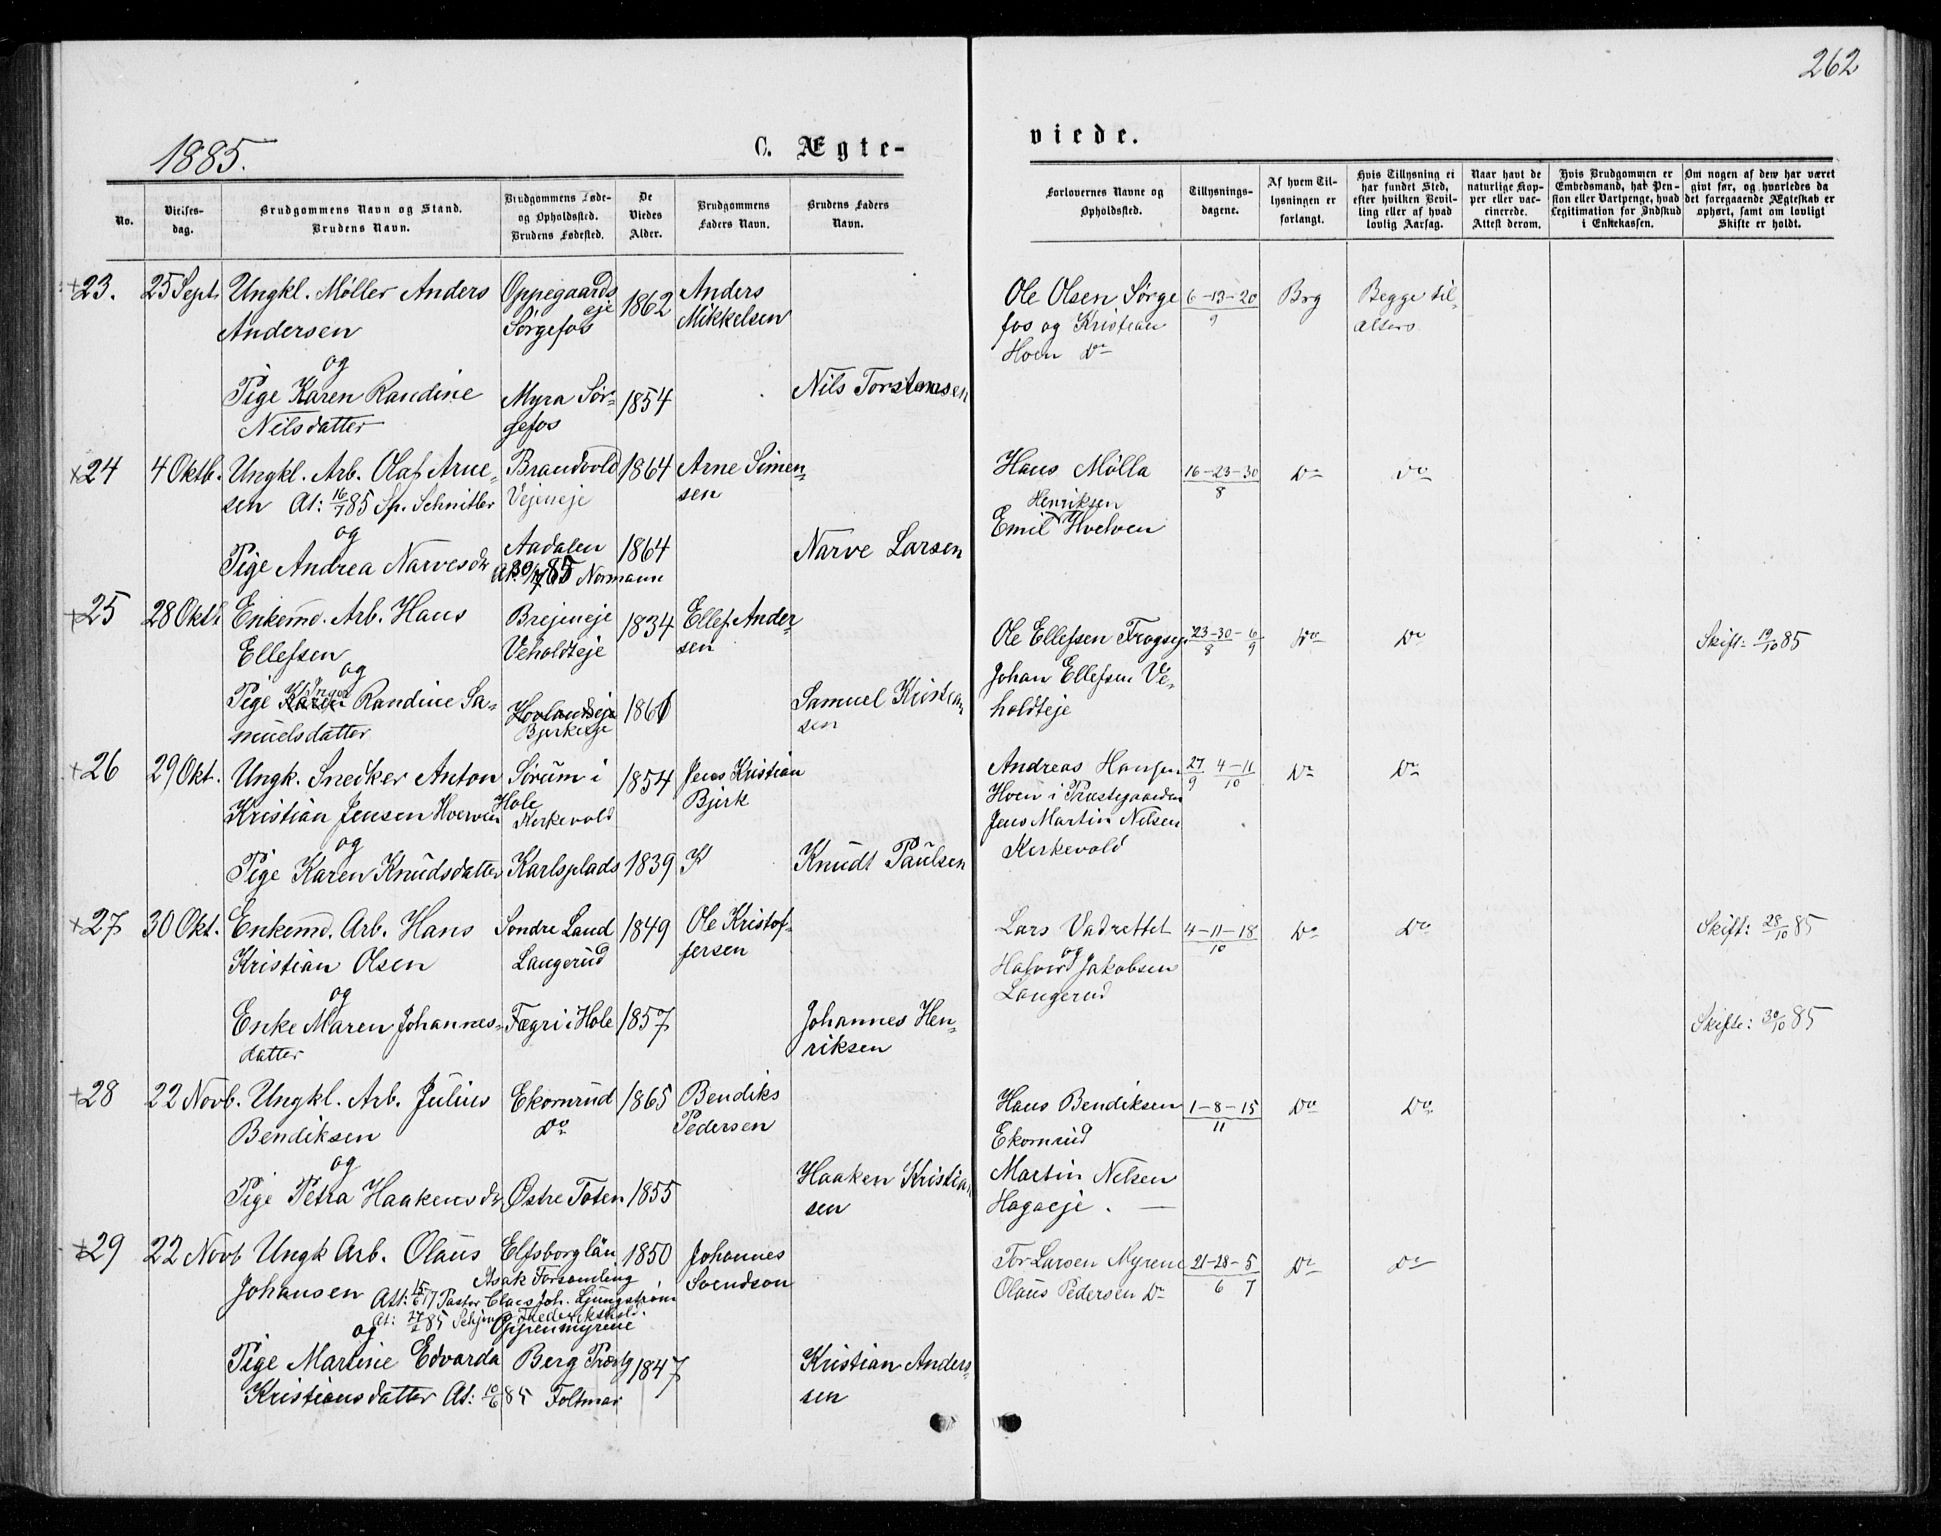 262
1885.
C. Ægte-
viede.
No.
Vielses-
dag.
Brudgommens Navn og Stand.
Brudens Navn.
Brudgommens Føde-
og Opholdssted.
Brudens Fødested.
De
Viedes
Alder.
Brudgommens
Faders Navn.
Brudens Faders
Navn.
Forlovernes Navne og
Opholdssted.
Tillysnings-
dagene.
Af hvem Til-
lysningen er
forlangt.
Hvis Tillysning ei
har fundet Sted,
efter hvilken Bevil-
ling eller af hvad
lovlig Aarsag.
Naar havt de
naturlige Kop-
per eller vac-
cinerede.
Attest derom.
Hvis Brudgommen er
Embedsmand, har Pen-
sion eller Vartpenge, hvad
Legitimation for Indskud
i Enkekassen.
Om nogen af dem har været
givt før, og hvorledes da
det foregaaende Ægteskab er
ophørt, samt om lovligt
Skifte er holdt.
+23. 25 Sept. Ungkl. Møller Anders Oppegaards 1862 Anders
Andersen eje Sørgefos Mikkelsen
og
Pige Karen Randine Myra Sør- 1854 Nils Torstensen
Nilsdatter gefos
Ole Olsen Sørge 6-13-20 Brg Begge til
fos og Kristian 9 alters
Hoen Do
+24 4 Oktb. Ungkl. Arb. Olaf Arne- Brandvold 1864 Arne Simen-
sen At: 16/7 85 Sp. Schnitler Vejeneje sen
og
Pige Andrea Narvesdr Aadalen 1864 Narve Larsen
At: 30/7 85 Normann
Hans Mølla 16-23-30 Do Do
Henriksen 8
Emil Hvelven
+25 28 Okt. Enkemd. Arb. Hans Brejeneje 1834 Ellef Ander-
Ellefsen Veholdteje sen
og
Pige Karen Randine Sa- Hovlandseje 1861 Samuel Kristian
muelsdatter Bjerkeeje sen
Ole Ellefsen 23-30-6 Do Do Skift: 19/10 85
Johan Ellefsen Ve- 8 9
holdteje
+26 29 Okt. Ungk. Snedker Anton Sørum i 1854 Jens Kristian
Kristian Jensen Hole Kirkevold Bjerk
og
Pige Karen Knudsdatter Karlsplads 1839 K Knudt Paulsen
Andreas Hansen 27 4-11 Do Do
Hoen i Præstegaarden 9 10
Jens Martin Nelsen
Kirkevold
+27 30 Okt. Enkemd. Arb. Hans Søndre Land 1849 Ole Kristof-
Kristian Olsen Langerud fersen
og
Enke Maren Johannes- Fægri i Hole 1857 Johannes Hen-
datter riksen
Lars Vadrettet 4-11-18 Do Do Skift: 28/10 85
og 10
Halvor Jakobsen
Langerud
Skifte: 30/10 85
+28 22 Novb. Ungkl. Arb. Julius Ekornrud 1865 Bendiks
Bendiksen Do Pedersen
og
Pige Petra Haakensdr Østre Toten 1855 Haaken Kristian
sen
Hans Bendiksen 1-8-15 Do Do
Ekornrud 11
Martin Nelsen
Hagaeje.
+29 22 Novb Ungk Arb. Olaus Elfsborg län 1850 Johannes
Asak Forsamling
Johansen Att: Pastor Claes Joh. Ljungström Svendson
At: 85 Frederikshald.
og Oppenmyrene
Pige Martine Edvarda Berg Præstg 1847 Kristian Anders
Kristiansdatter At: 10/6 85 Foltmar sen
Tor Larsen Myrene 21-28-5 Do Do
Olaus Pedersen Do 6 7